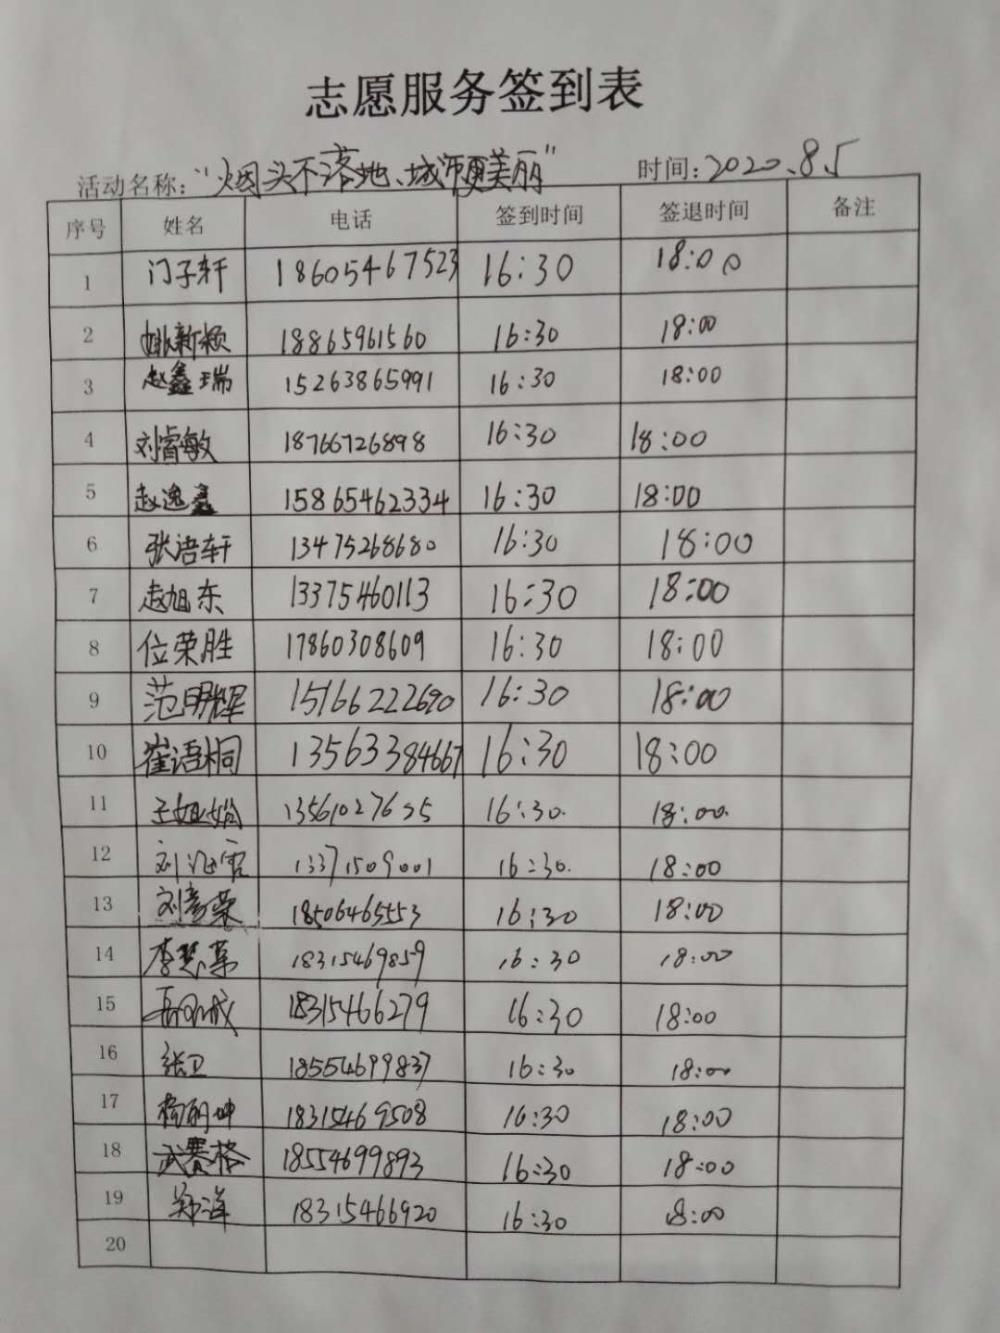 志愿服务签到表
活动名称："烟头不落地、城市更美丽" 时间：2020.8.5
序号 姓名 电话 签到时间 签退时间 备注
1 门子轩 18605467523 16:30 18:00
2 姚新颖 18865961560 16:30 18:00
3 赵鑫瑞 15263865991 16:30 18:00
4 刘睿敏 18766726898 16:30 18:00
5 赵逸鑫 15865462334 16:30 18:00
6 张浩轩 13475268680 16:30 18:00
7 赵旭东 13375460113 16:30 18:00
8 位荣胜 17860308609 16:30 18:00
9 范明辉 15166222690 16:30 18:00
10 崔语桐 13563384667 16:30 18:00
11 王 13561027655 16:30 18:00
12 刘 13371509001 16:30 18:00
13 刘彦荣 18506465553 16:30 18:00
14 李慧 18315469859 16:30 18:00
15 18315466279 16:30 18:00
16 张卫 18554699837 16:30 18:00
17 杨明坤 18315469508 16:30 18:00
18 武赛格 18554699893 16:30 18:00
19 郑洋 18315466920 16:30 18:00
20